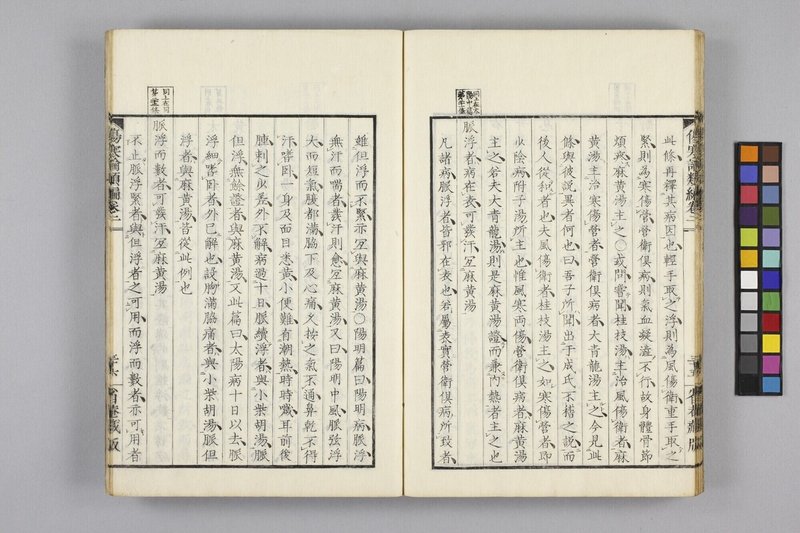 此條再釋其病因也輕手取之浮則為風傷衛重手取之
緊則為寒傷營營衛俱病則氣血凝澁不行故身體骨節
煩疼麻黃湯主之○或問嘗聞桂枝湯主治風傷衛者麻
黃湯主治寒傷營者營衛俱病者大青龍湯主之今見此
條與彼說異者何也曰吾子所聞出于成氏不稽之說而
後人從和者也夫風傷衛者桂枝湯主之如寒傷營者即
少陰病附子湯所主也惟風寒両傷營衛俱病者麻黃湯
主之若夫大青龍湯則是麻黃湯證而兼内熱者主之也
脈浮者病在表可發汗宜麻黃湯
凡諸病脈浮者皆邪在表也若屬表實營衛俱病所致者
雖但浮而不緊亦宜與麻黃湯○陽明篇曰陽明病脈浮
無汗而喘者發汗則愈宜麻黃湯又曰陽明中風脈弦浮
大而短氣腹都滿脇下及心痛久按之氣不通鼻乾不得
汗嗜卧一身及面目悉黃小便難有潮熱時時噦耳前後
腫刺之少差外不解病過十日脈續浮者與小柴胡湯脈
但浮無餘證者與麻黃湯又此篇曰太陽病十日以去脈
浮細嗜卧者外已解也設胸滿脇痛者與小柴胡湯脈但
浮者與麻黃湯皆從此例也
脈浮而數者可發汗宜麻黃湯
不止脈浮緊者與但浮者之可用而浮而數者亦可用者
傷寒論類編卷二